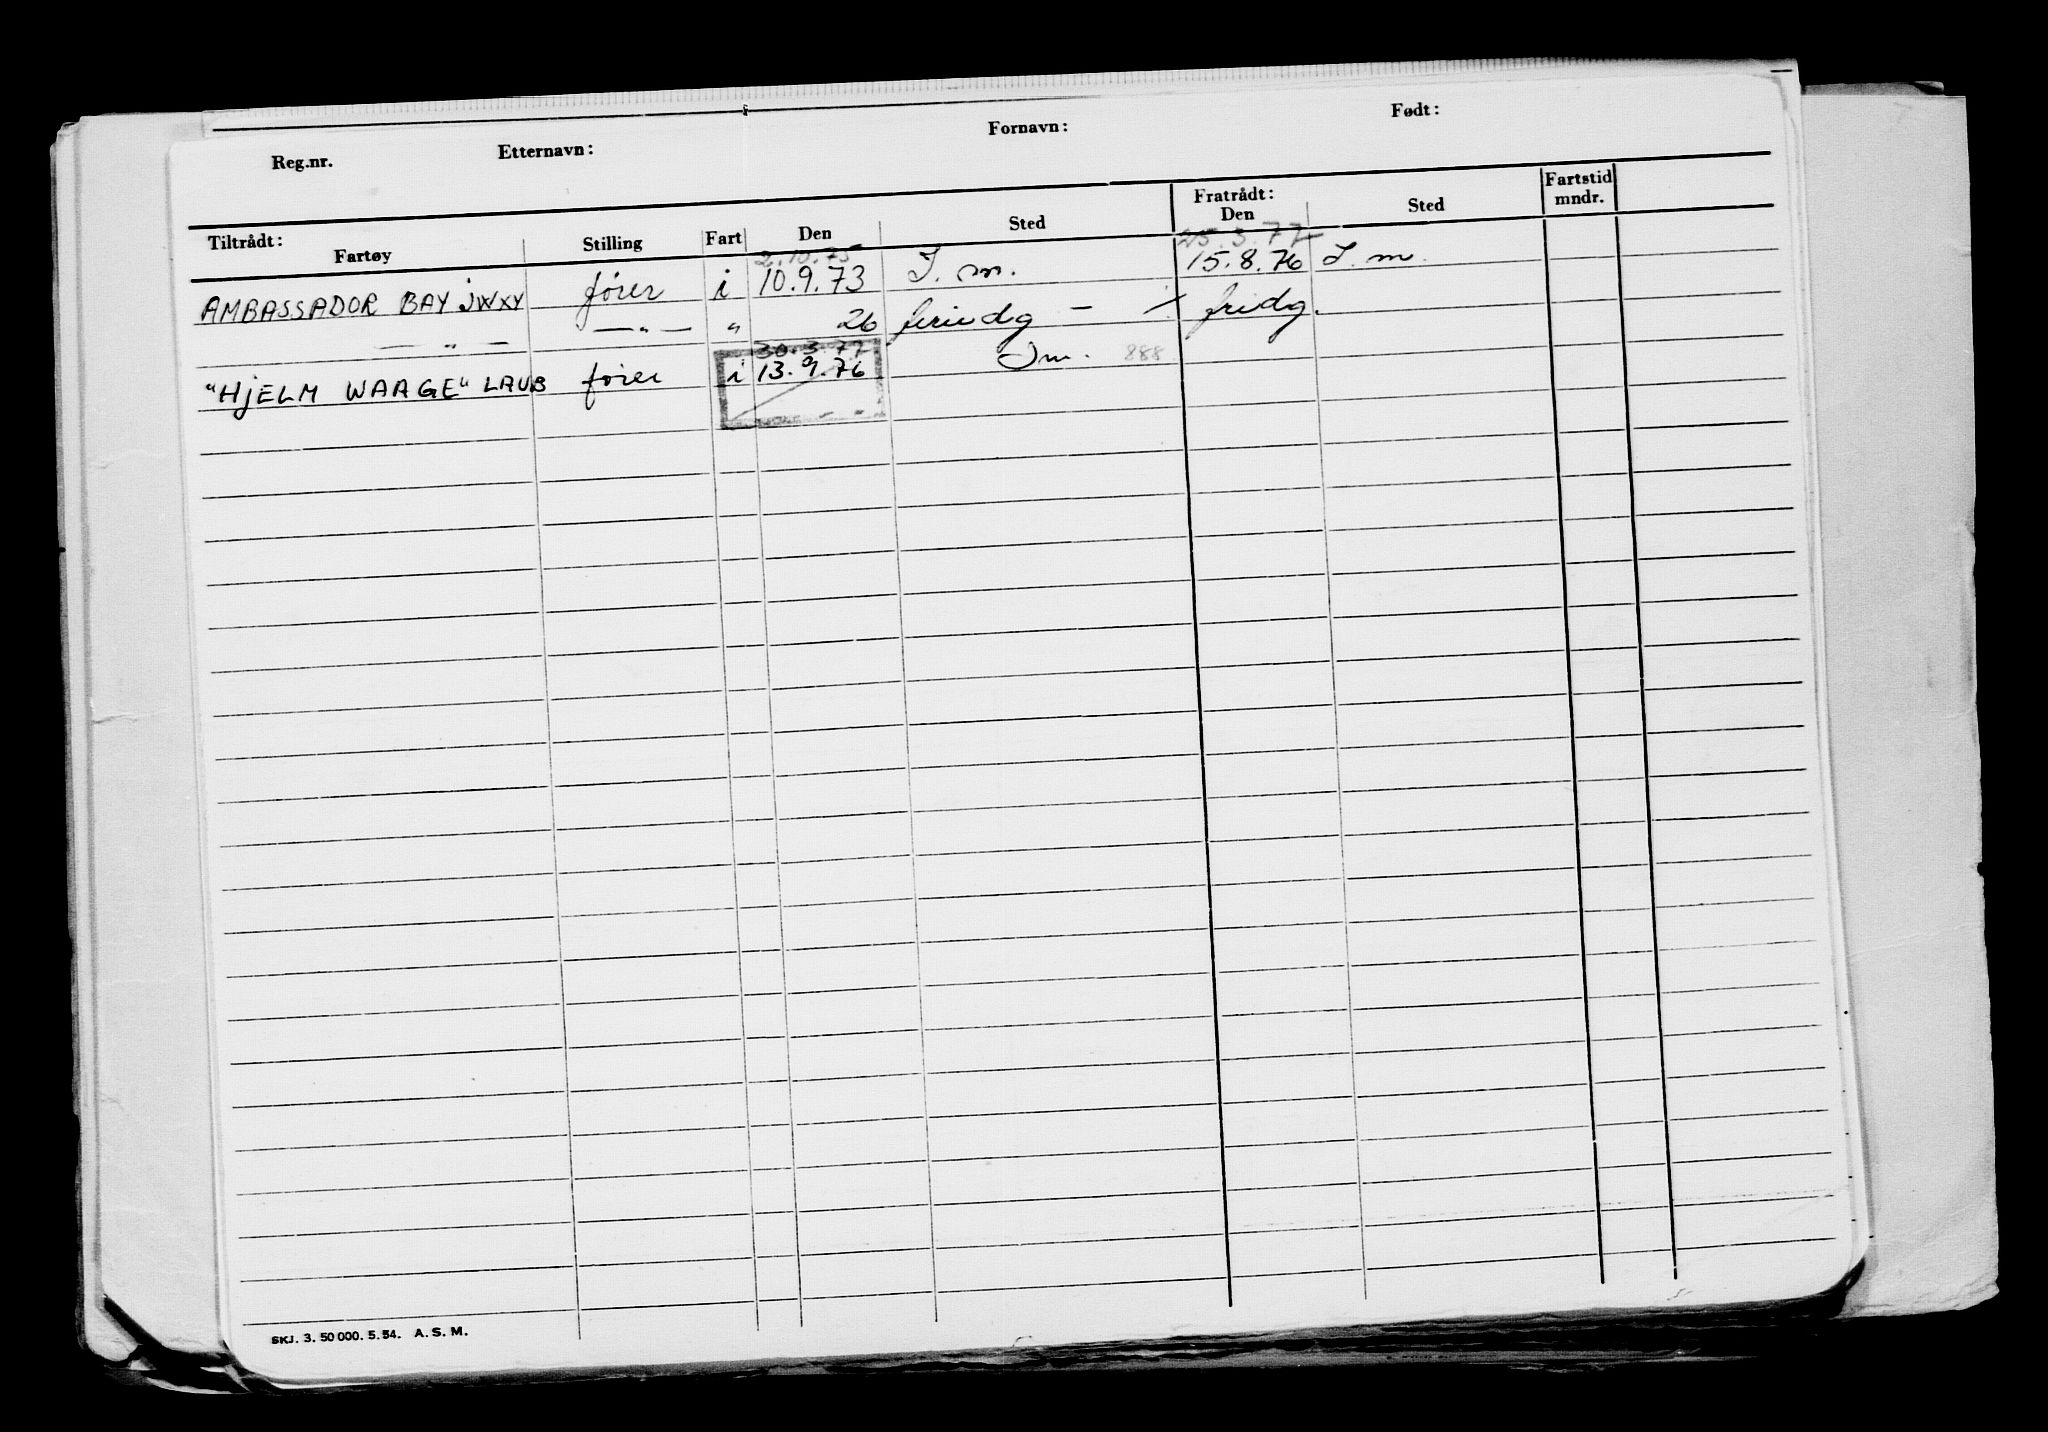 Reg.nr. Etternavn: Fornavn: Født:
Tiltrådt: Fratrådt: Fartstid
Fartøy Stilling Fart Den Sted Den Sted mndr.
2.10.75 25.3.77
AMBASSADOR BAY JWXY fører i 10.9.73 I. m. 15.8.76 I. m.
— " — — " — " 26 feriedg - / fridg.
30.3.77
"HJELM WAAGE" LAUB fører i 13.9.76 Im. 888
SKJ. 3. 50 000. 5. 54. A. S. M.